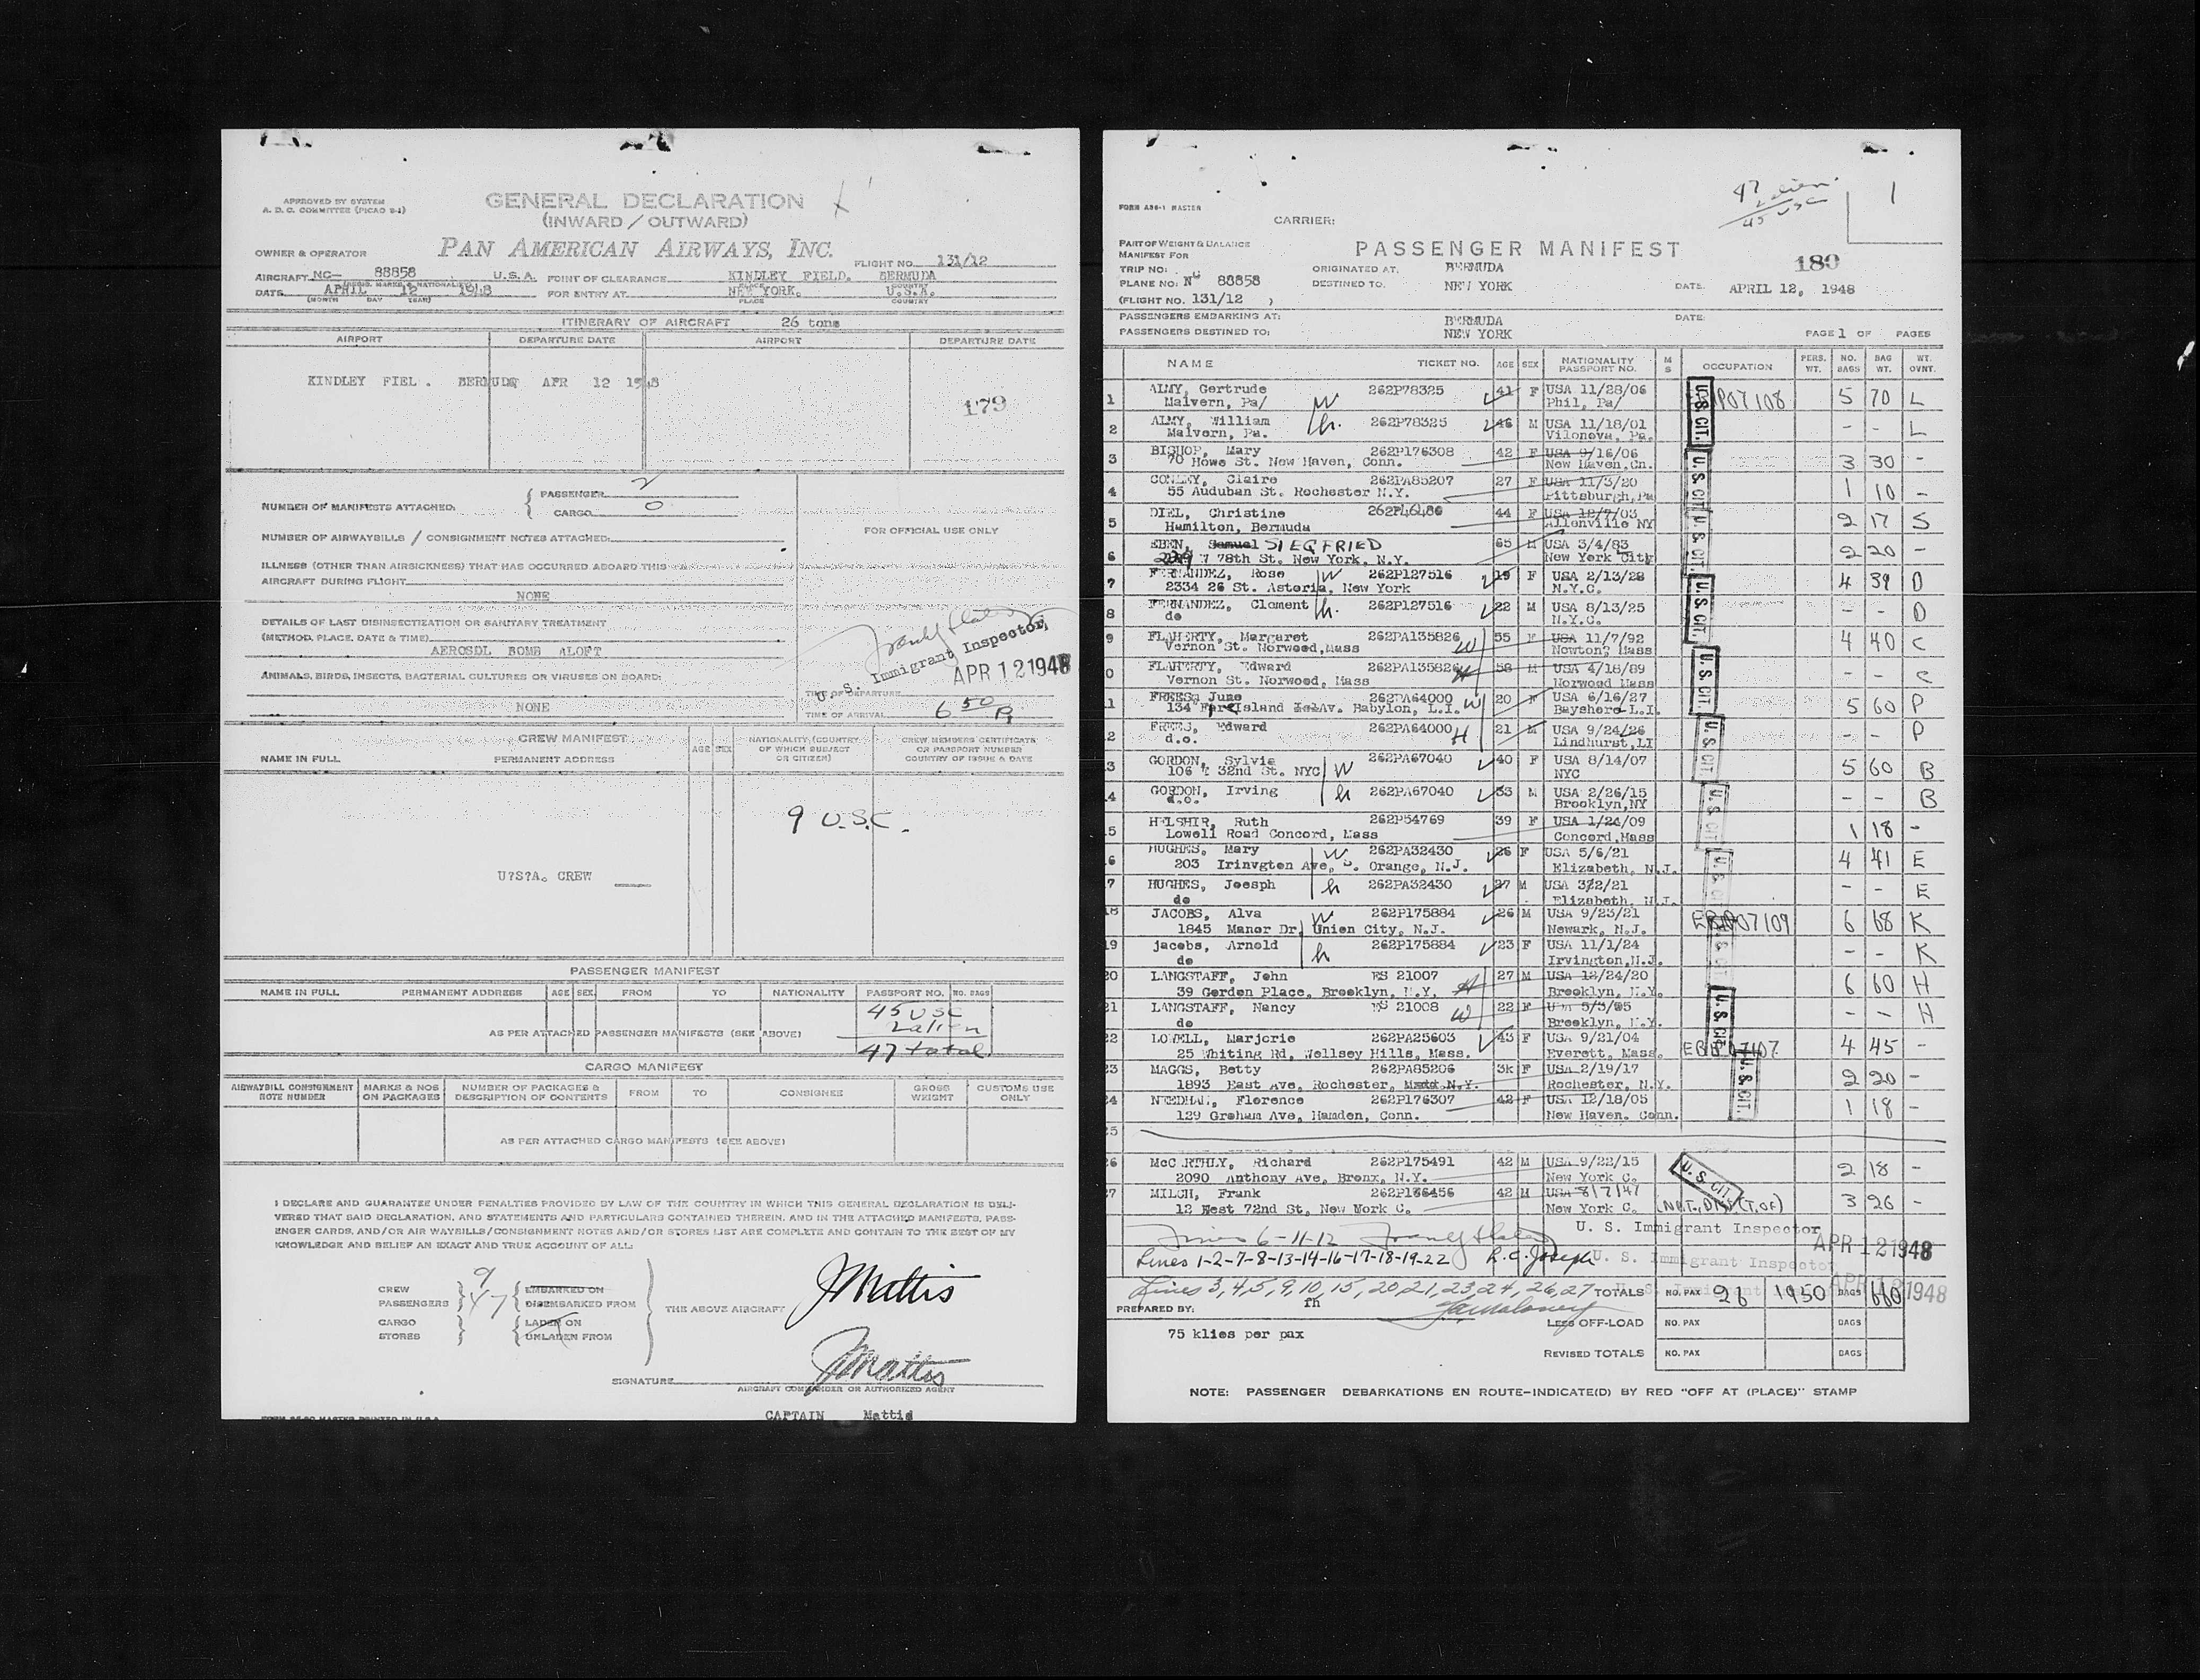 APPROVED BY SYSTEM
A. D. C. COMMITTEE (PICAO S-1)
GENERAL DECLARATION
(INWARD / OUTWARD)
PAN AMERICAN AIRWAYS, INC.
OWNER & OPERATOR
FLIGHT NO. 131/12
AIRCRAFT NC- 88858 U.S.A. POINT OF CLEARANCE KINDLEY FIELD. BERMUDA
(REGIS. MARKS & NATIONALITY) PLACE COUNTRY
DATE APRIL 12 1948 FOR ENTRY AT NEW YORK. U.S.A.
(MONTH DAY YEAR) PLACE COUNTRY
ITINERARY OF AIRCRAFT 26 tons
AIRPORT DEPARTURE DATE AIRPORT DEPARTURE DATE
KINDLEY FIEL . BERMUDA APR 12 1948
179
NUMBER OF MANIFESTS ATTACHED: PASSENGER 2
CARGO 0
FOR OFFICIAL USE ONLY
NUMBER OF AIRWAYBILLS / CONSIGNMENT NOTES ATTACHED:
ILLNESS (OTHER THAN AIRSICKNESS) THAT HAS OCCURRED ABOARD THIS
AIRCRAFT DURING FLIGHT
NONE
DETAILS OF LAST DISINSECTIZATION OR SANITARY TREATMENT
(METHOD, PLACE, DATE & TIME)
AEROSOL BOMB ALOFT
U. S. Immigrant Inspector
APR 12 1948
ANIMALS, BIRDS, INSECTS, BACTERIAL CULTURES OR VIRUSES ON BOARD:
NONE
TIME OF DEPARTURE
TIME OF ARRIVAL 6 50 P
CREW MANIFEST
NAME IN FULL PERMANENT ADDRESS AGE SEX NATIONALITY (COUNTRY OF WHICH SUBJECT OR CITIZEN) CREW MEMBERS CERTIFICATE OR PASSPORT NUMBER COUNTRY OF ISSUE & DATE
9 U.S.C.
U?S?A. CREW
PASSENGER MANIFEST
NAME IN FULL PERMANENT ADDRESS AGE SEX FROM TO NATIONALITY PASSPORT NO. NO. BAGS
45 USC
2 alien
AS PER ATTACHED PASSENGER MANIFESTS (SEE ABOVE)
47 total
CARGO MANIFEST
AIRWAYBILL CONSIGNMENT NOTE NUMBER MARKS & NOS ON PACKAGES NUMBER OF PACKAGES & DESCRIPTION OF CONTENTS FROM TO CONSIGNEE GROSS WEIGHT CUSTOMS USE ONLY
AS PER ATTACHED CARGO MANIFESTS (SEE ABOVE)
I DECLARE AND GUARANTEE UNDER PENALTIES PROVIDED BY LAW OF THE COUNTRY IN WHICH THIS GENERAL DECLARATION IS DELI-
VERED THAT SAID DECLARATION, AND STATEMENTS AND PARTICULARS CONTAINED THEREIN, AND IN THE ATTACHED MANIFESTS, PASS-
ENGER CARDS, AND/OR AIR WAYBILLS/CONSIGNMENT NOTES AND/OR STORES LIST ARE COMPLETE AND CONTAIN TO THE BEST OF MY
KNOWLEDGE AND BELIEF AN EXACT AND TRUE ACCOUNT OF ALL:
CREW 9 EMBARKED ON
PASSENGERS 47 DISEMBARKED FROM
THE ABOVE AIRCRAFT
JMattis
CARGO LADEN ON
STORES UNLADEN FROM
JMattis
SIGNATURE
AIRCRAFT COMMANDER OR AUTHORIZED AGENT
CAPTAIN Mattis
47
2 alien
45 USC
1
FORM A36-1 MASTER
CARRIER:
PART OF WEIGHT & BALANCE
MANIFEST FOR
PASSENGER MANIFEST
180
TRIP NO: ORIGINATED AT. BERMUDA
PLANE NO: NC 88858 DESTINED TO. NEW YORK DATE. APRIL 12, 1948
(FLIGHT NO. 131/12 )
PASSENGERS EMBARKING AT: BERMUDA DATE:
PASSENGERS DESTINED TO: NEW YORK PAGE 1 OF PAGES
NAME TICKET NO. AGE SEX NATIONALITY PASSPORT NO. M S OCCUPATION PERS. WT. NO. BAGS BAG WT. WT. OVNT.
1 ALMY, Gertrude W 262P78325 41 F USA 11/28/06 P07108 5 70 L
Malvern, Pa/ Phil, Pa/
2 ALMY, William h. 262P78325 46 M USA 11/18/01 - - L
Malvern, Pa. Vilonova, Pa.
3 BISHOP, Mary 262P176308 42 F USA 9/16/06 3 30 -
70 Howe St. New Haven, Conn. New Haven, Cn.
4 CONLEY, Claire 262PA85207 27 F USA 11/3/20 1 10 -
55 Auduban St. Rochester N.Y. Pittsburgh, Pa
5 DIEL, Christine 44 F USA 12/7/03 2 17 S
Hamilton, Bermuda Allenville NY
6 EBEN, Samuel SIEGFRIED 65 M USA 3/4/83 2 20 -
78th St. New York, N.Y. New York City
7 FERNANDEZ, Rose W 262P127516 19 F USA 2/13/28 4 39 D
2334 26 St. Astoria, New York N.Y.C.
8 FERNANDEZ, Clement h. 262P127516 22 M USA 8/13/25 - - D
do N.Y.C.
9 FLAHERTY, Margaret 262PA135826 W 55 F USA 11/7/92 4 40 C
Vernon St. Norwood, Mass Newton, Mass
0 FLAHERTY, Edward 262PA135826 H 58 M USA 4/18/89 - - C
Vernon St. Norwood, Mass Norwood Mass
11 FREES, June 262PA64000 W 20 F USA 6/16/27 5 60 P
134 Fire Island Av. Babylon, L.I. Bayshore L.I.
2 FREES, Edward 262PA64000 H 21 M USA 9/24/26 - - P
d.o. Lindhurst, LI
3 GORDON, Sylvia W 262PA67040 40 F USA 8/14/07 5 60 B
106 E 32nd St. NYC NYC
4 GORDON, Irving h 262PA67040 33 M USA 2/26/15 - - B
d.o. Brooklyn, NY
5 HELSHIR, Ruth 262P54769 39 F USA 1/24/09 1 18 -
Lowell Road Concord, Mass Concord, Mass
6 HUGHES, Mary W 262PA32430 26 F USA 5/6/21 4 41 E
203 Irinvgton Ave, S. Orange, N.J. Elizabeth, N.J.
7 HUGHES, Joesph h 262PA32430 27 M USA 3/2/21 - - E
do Elizabeth, N.J.
18 JACOBS, Alva W 262P175884 26 M USA 9/23/21 EBP07109 6 68 K
1845 Manor Dr. Union City, N.J. Newark, N.J.
19 jacobs, Arnold h 262P175884 23 F USA 11/1/24 - - K
do Irvington, N.J.
20 LANGSTAFF, John ES 21007 H 27 M USA 12/24/20 6 60 H
39 Gerden Place, Brooklyn, N.Y. Brooklyn, N.Y.
21 LANGSTAFF, Nancy ES 21008 W 22 F 5/3/25 - - H
do Brooklyn, N.Y.
22 LOWELL, Marjorie 262PA25603 43 F USA 9/21/04 EBP07107 4 45 -
25 Whiting Rd, Wellsey Hills, Mass. Everett, Mass.
23 MAGGS, Betty 262PA85206 3k F USA 2/19/17 2 20 -
1893 East Ave, Rochester, N.Y. Rochester, N.Y.
24 NEEDHAM, Florence 262P176307 42 F USA 12/18/05 1 18 -
129 Graham Ave, Hamden, Conn. New Haven. Conn.
25
26 McCARTHLY, Richard 262P175491 42 M USA 9/22/15 2 18 -
2090 Anthony Ave, Bronx, N.Y. New York C.
27 MILCH, Frank 262P186456 42 M USA 8/7/47 3 26 -
12 West 72nd St, New Work C. New York C.
U.S. CIT.
U.S. CIT.
U.S. CIT.
U.S. CIT.
U.S. CIT.
U.S. CIT.
U.S. CIT.
U.S. CIT.
U.S. CIT.
U.S. CIT.
U.S. CIT.
U.S. CIT.
Lines 6-11-12 U. S. Immigrant Inspector APR 12 1948
Lines 1-2-7-8-13-14-16-17-18-19-22 R.C. Joseph U. S. Immigrant Inspector
Lines 3,4,5,9,10,15,20,21,23,24,26,27 TOTALS NO. PAX 26 1950 BAGS 660 APR 12 1948
PREPARED BY: fh
LESS OFF-LOAD NO. PAX BAGS
75 klies per pax
REVISED TOTALS NO. PAX BAGS
NOTE: PASSENGER DEBARKATIONS EN ROUTE-INDICATE(D) BY RED "OFF AT (PLACE)" STAMP